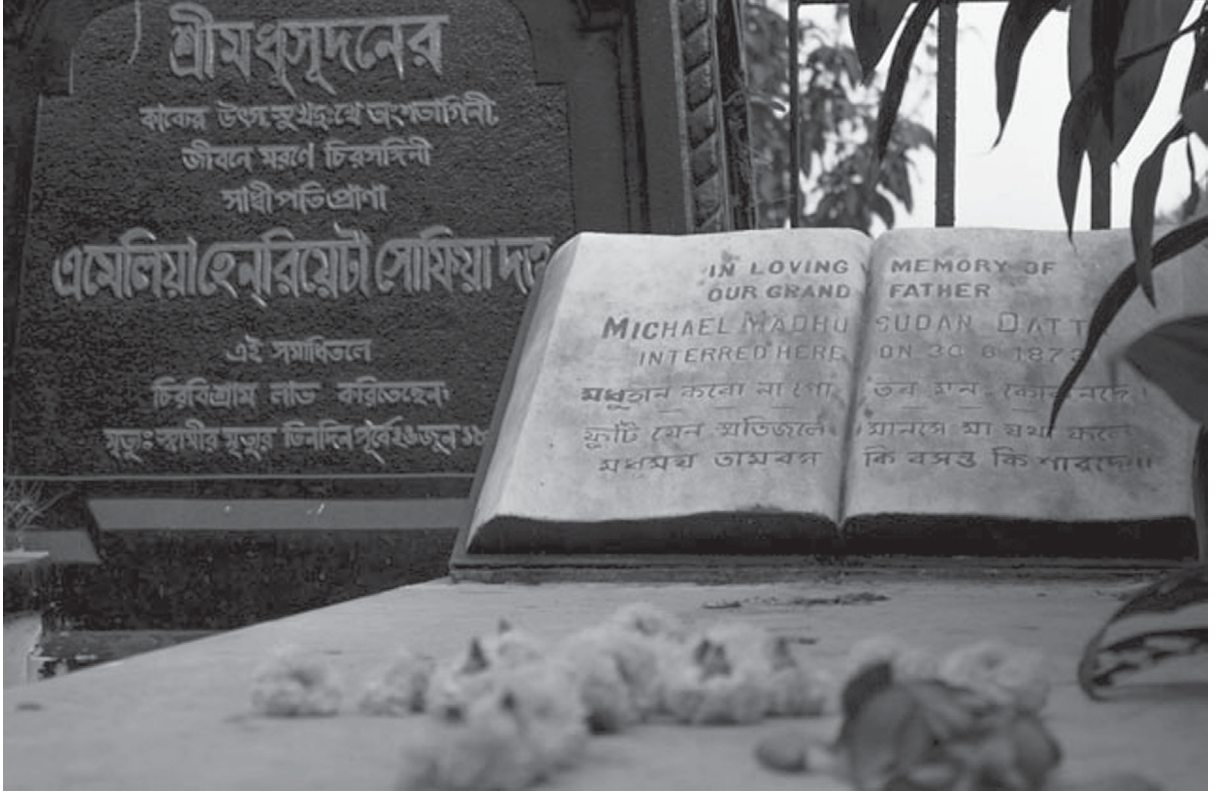 শ্রীমধুসূদনের
কাব্যের উৎস সুখদুঃখে অংশভাগিনী,
জীবনে মরণে চিরসঙ্গিনী
সাধ্বী পতিপ্রাণা
এমেলিয়া হেন্‌রিয়েটা সোফিয়া দত্ত
এই সমাধিতলে
চিরবিশ্রাম লাভ করিতেছেন।
মৃত্যুঃ স্বামীর মৃত্যুর তিনদিন পূর্বে ২৬ জুন ১৮
IN LOVING MEMORY OF
OUR GRAND FATHER
MICHAEL MADHU SUDAN DATT
INTERRED HERE ON 30 6 1873
মধুহীন করো না গো তব মনঃ কোকনদে।
ফুটি যেন স্মৃতিজলে মানসে মা যথা ফলে
মধুময় তামরস কি বসন্ত কি শারদে॥